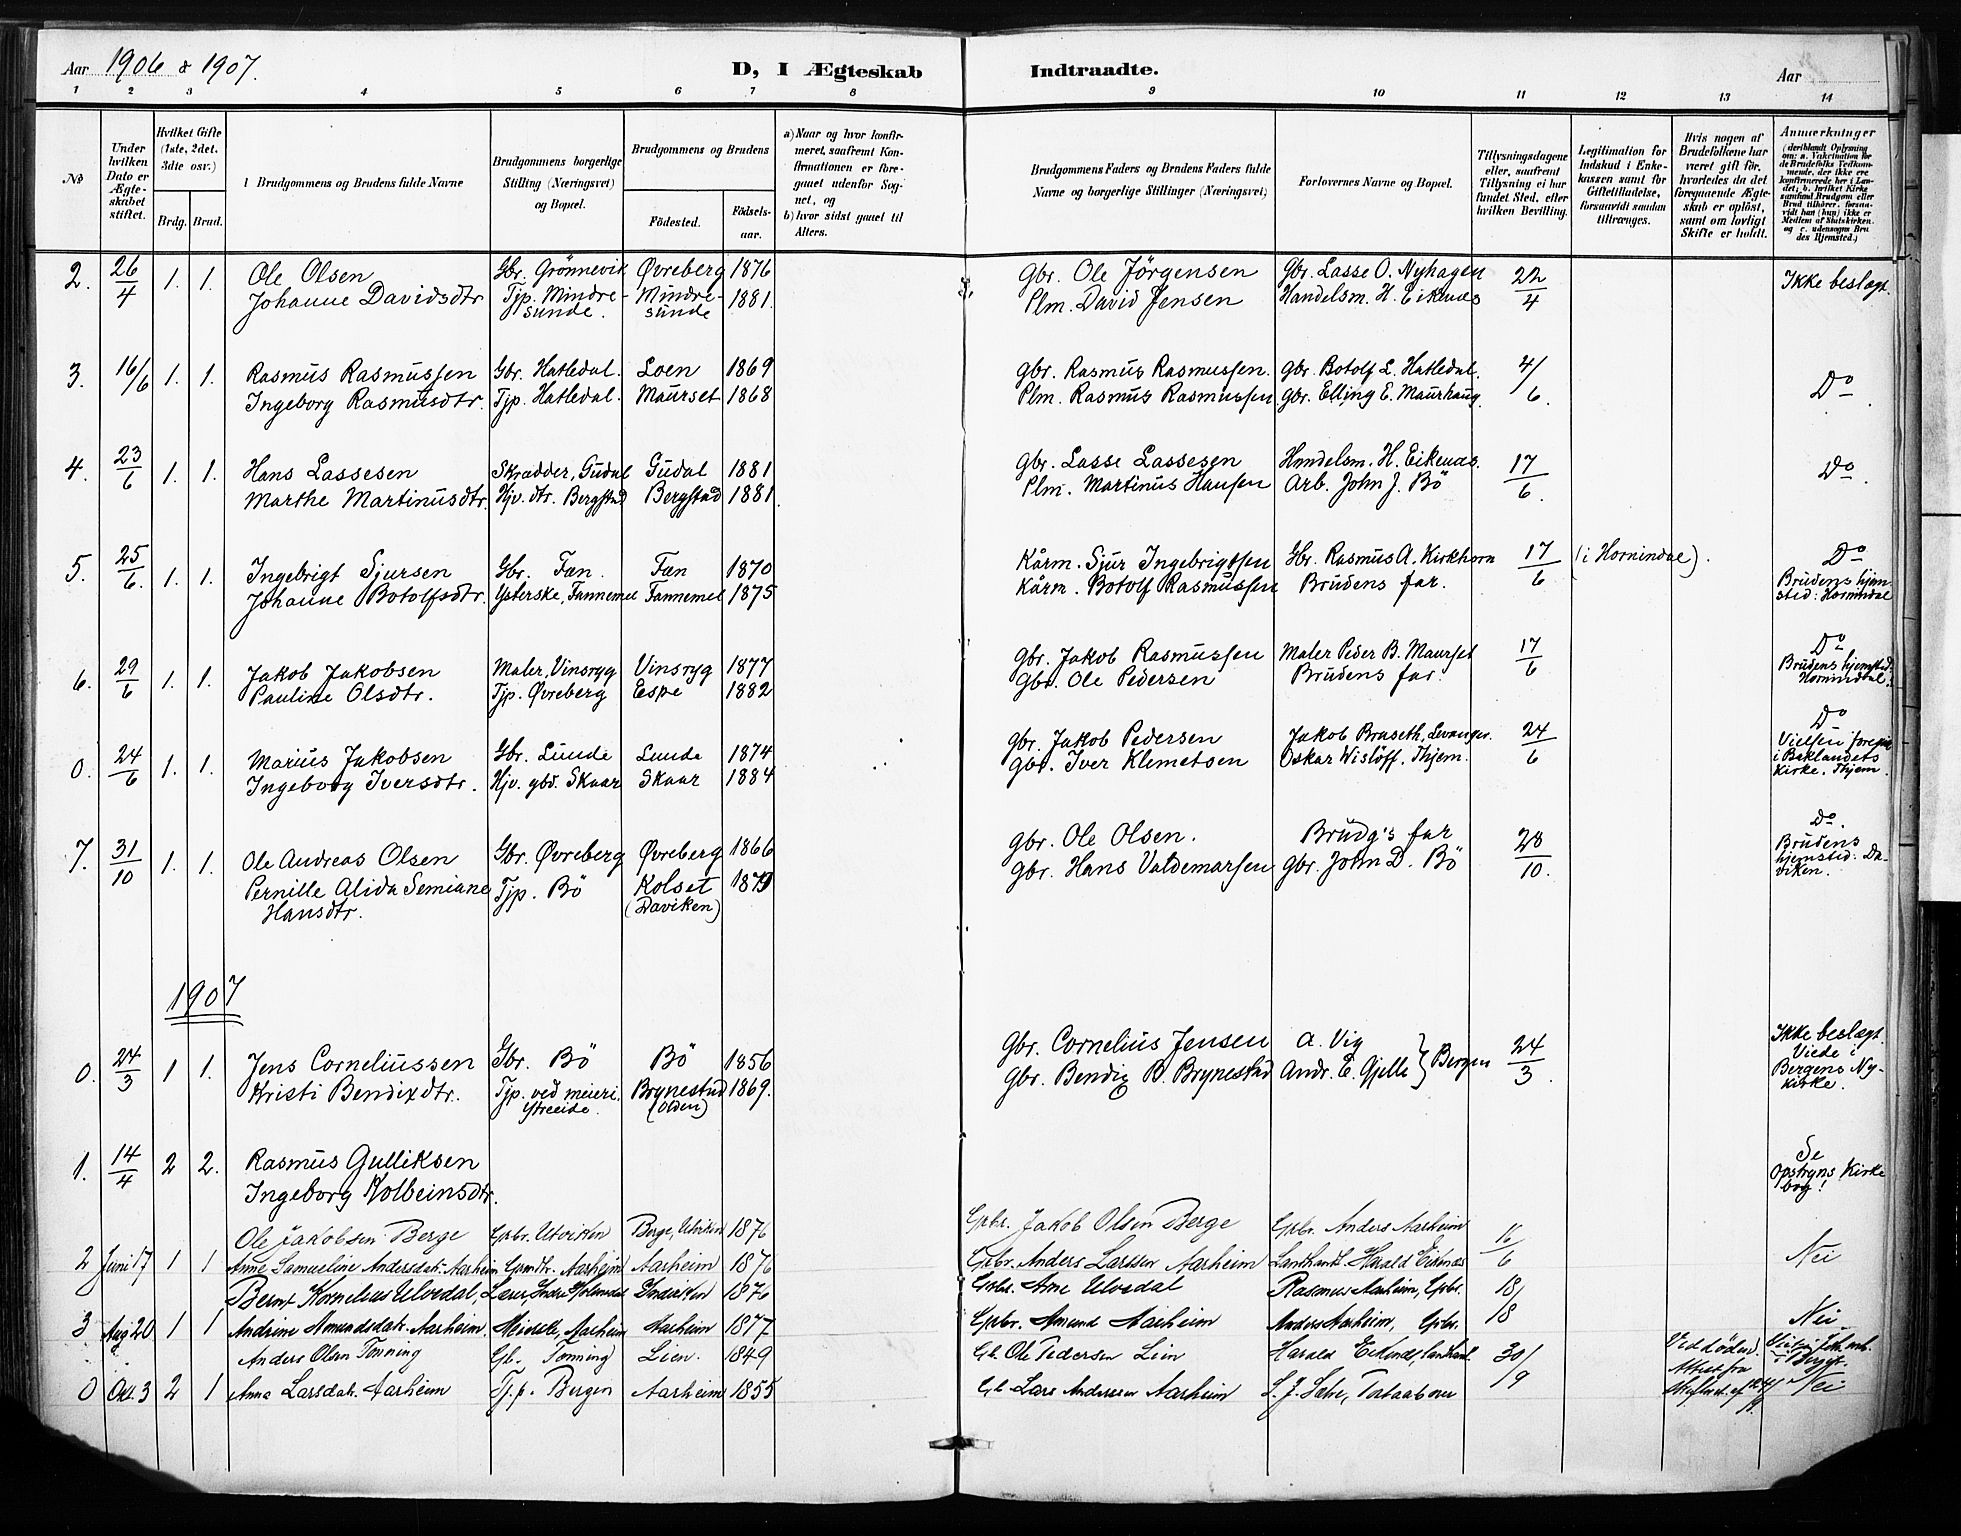 Aar 1906 & 1907.
D, I Ægteskab Indtraadte.
Aar
1 2 3 4 5 6 7 8 9 10 11 12 13 14
No
Under hvilken Dato er Ægteskabet stiftet.
Hvilket Gifte (1ste, 2det, 3dte osv.)
Brdg. Brud.
Brudgommens og Brudens fulde Navne
Brudgommens borgerlige Stilling (Næringsvei) og Bopæl.
Brudgommens og Brudens
Födested.
Födselsaar.
a) Naar og hvor konfirmeret, saafremt Konfirmationen er foregaaet udenfor Sognet, og
b) hvor sidst gaaet til Alters.
Brudgommens Faders og Brudens Faders fulde Navne og borgerlige Stillinger (Næringsvei)
Forlovernes Navne og Bopæl.
Tillysningsdagene eller, saafremt Tillysning ei har fundet Sted, efter hvilken Bevilling.
Legitimation for Indskud i Enkekassen samt for Giftetilladelse, forsaavidt saadan tiltrænges.
Hvis nogen af Brudefolkene har været gift för, hvorledes da det foregaaende Ægteskab er oplöst, samt om lovligt Skifte er holdt.
Anmærkninger (deriblandt Oplysning om: a. Vakcination for de Brudefolks Vedkommende, der ikke ere konfirmerede her i Landet, b. hvilket Kirkesamfund Brudgom eller Brud tilhörer, forsaavidt han (hun) ikke er Medlem af Statskirken, og c. udensogns Brudes Hjemsted.)
2. 26/4 1. 1. Ole Olsen Gbr. Grönnevik Øvreberg 1876 Gbr. Ole Jörgensen Gbr. Lasse O. Nyhagen 22/4 Ikke beslægt.
Johanne Davidsdtr Tjp. Mindresunde. Mindresunde 1881. Plm. David Jensen Handelsm. H. Eikenæs
3. 16/6 1. 1. Rasmus Rasmussen Gbr. Hatledal. Loen 1869 Gbr. Rasmus Rasmussen. Gbr. Botolf L. Hatledal. 4/6. Do
Ingeborg Rasmusdtr. Tjp. Hatledal. Maurset 1868 Plm. Rasmus Rasmussen Gbr. Elling E. Maurhaug.
4. 23/6 1. 1. Hans Lassesen Skrædder, Gudal Gudal 1881 Gbr. Lasse Lassesen Handelsm. H. Eikenæs. 17/6. Do
Marthe Martinusdtr. Hjv. dtr. Bergstad Bergstad 1881. Plm. Martinus Hansen Arb. John J. Bö
5. 25/6. 1. 1. Ingebrigt Sjursen Gbr. Fæn. Fæn 1870 Kårm. Sjur Ingebrigtsen Gbr. Rasmus A. Kirkhorn 17/6 (i Hornindal). Do
Johanne Botolfsdtr. Ysterske, Fannemel Fannemel 1875 Kårm. Botolf Rasmussen Brudens far. Brudens hjemsted: Hornindal
6. 29/6 1. 1. Jakob Jakobsen Maler, Vinsryg Vinsryg 1877 Gbr. Jakob Rasmussen Maler Peder B. Maurset 17/6 Do
Pauline Olsdtr. Tjp. Øvreberg Espe 1882 Gbr. Ole Pedersen Brudens far. Brudens hjemsted: Hornindal.
0. 24/6 1. 1. Marius Jakobsen Gbr. Lunde Lunde 1874 Gbr. Jakob Pedersen Jakob Braseth, Levanger. 24/6 Do
Ingeborg Iversdtr. Hjv. gbd. Skaar Skaar 1884 Gbr. Iver Klemetsen Oskar Wislöff. Thjem. Vielsen i Baklandets Kirke. Thjem.
7. 31/10 1. 1. Ole Andreas Olsen Gbr. Øvreberg Øvreberg 1866 Gbr. Ole Olsen. Brudg's far 28/10. Do.
Pernille Alida Semiane Hansdtr. Tjp. Bö Kolset (Daviken) Gbr. Hans Valdemarsen Gbr. John D. Bö Brudens hjemsted: Daviken.
1907
0. 24/3 1 1. Jens Corneliussen Gbr. Bö Bö 1856 Gbr. Cornelius Jensen A. Vig 24/3. Ikke beslægt.
Kristi Bendixdtr. Tjp. ved meieri, Ytreeide. Brynestad (Olden) 1869. Gbr. Bendix B. Brynestad Andr. E. Gjelle } Bergen Viede i Bergens Nykirke.
1. 14/4 2 2. Rasmus Gulliksen Se Opstryns Kirkebog!
Ingeborg Kolbeinsdtr.
Ole Jakobsen Berge Gbr. Utviken Berge, Utviken 1876 Gbr. Jakob Olsen Berge Gbr. Anders Aarheim 16/6
2 Juni 17 1 1 Anne Samueline Andersdatr. Aarheim Gaardtr. Aarheim Aarheim 1876 Gbr. Anders Larsen Aarheim Landhandl. Harald Eikenæs Nei
Bernt Kornelius Ulvedal, Lærer, Indre Holmedal Indviken 1876 Gbr. Arne Ulvedal Rasmus Aarheim, Gbr. 18/18
3 Aug 20 1 1 Andrine Amundsdatr. Aarheim. Meierske, Aarheim Aarheim 1877 Gbr. Amund Aarheim Anders Aarheim, Gbr. Nei
Anders Olsen Tonning Gb. Tonning Lien. 1849 Gb. Ole Pedersen Lien Harald Eikenæs, landhandl. 30/9 Ved döden.
0 Okt. 3 2 1 Anna Larsdatr. Aarheim Tj.p. Bergen Aarheim 1855 Gb. Lars Andersen Aarheim Nei